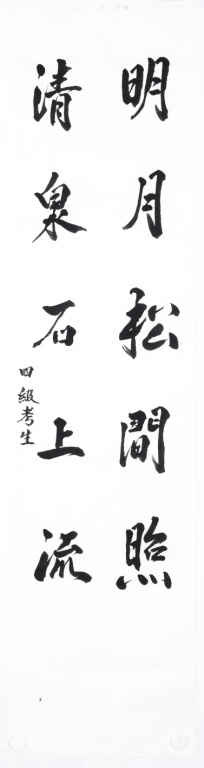 明月松間照
清泉石上流
四級考生